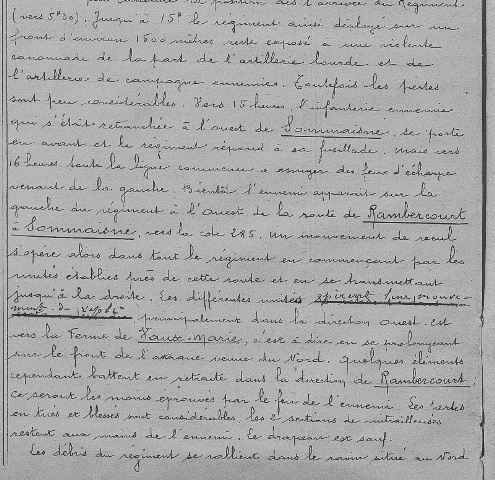 pour couvrir la position dès l'arrivée du Régiment
(vers 5h30). Jusqu'à 15h le régiment ainsi déployé sur un
front d'environ 1500 mètres reste exposé à une violente
canonnade de la part de l'artillerie lourde et de
l'artillerie de campagne ennemies. Toutefois les pertes
sont peu considérables. Vers 15 heures, l'infanterie ennemie
qui s'était retranchée à l'ouest de Sommaisne, se porte
en avant et le régiment répond à sa fusillade. Mais vers
16 heures toute la ligne commence à essuyer des feux d'écharpe
venant de la gauche. Bientôt l'ennemi apparait sur la
gauche du régiment à l'Ouest de la route de Rambercourt
à Sommaisne, vers la cote 285. Un mouvement de recul
s'opère alors dans tout le régiment en commençant par les
unités établies près de cette route et en se transmettant
jusqu'à la droite. Les différentes unités opèrent leur mouve-
ment de repli principalement dans la direction Ouest-Est
vers la Ferme de Vaux-Marie, c'est à dire en se prolongeant
sur le front de l'attaque venue du Nord. Quelques éléments
cependant battent en retraite dans la direction de Rambercourt:
ce seront les moins éprouvés par le feu de l'ennemi. Les pertes
en tués et blessés sont considérables, les 2 sections de mitrailleuses
restent aux mains de l'ennemi. Le drapeau est sauf.
Les débris du régiment se rallient dans le ravin situé au Nord